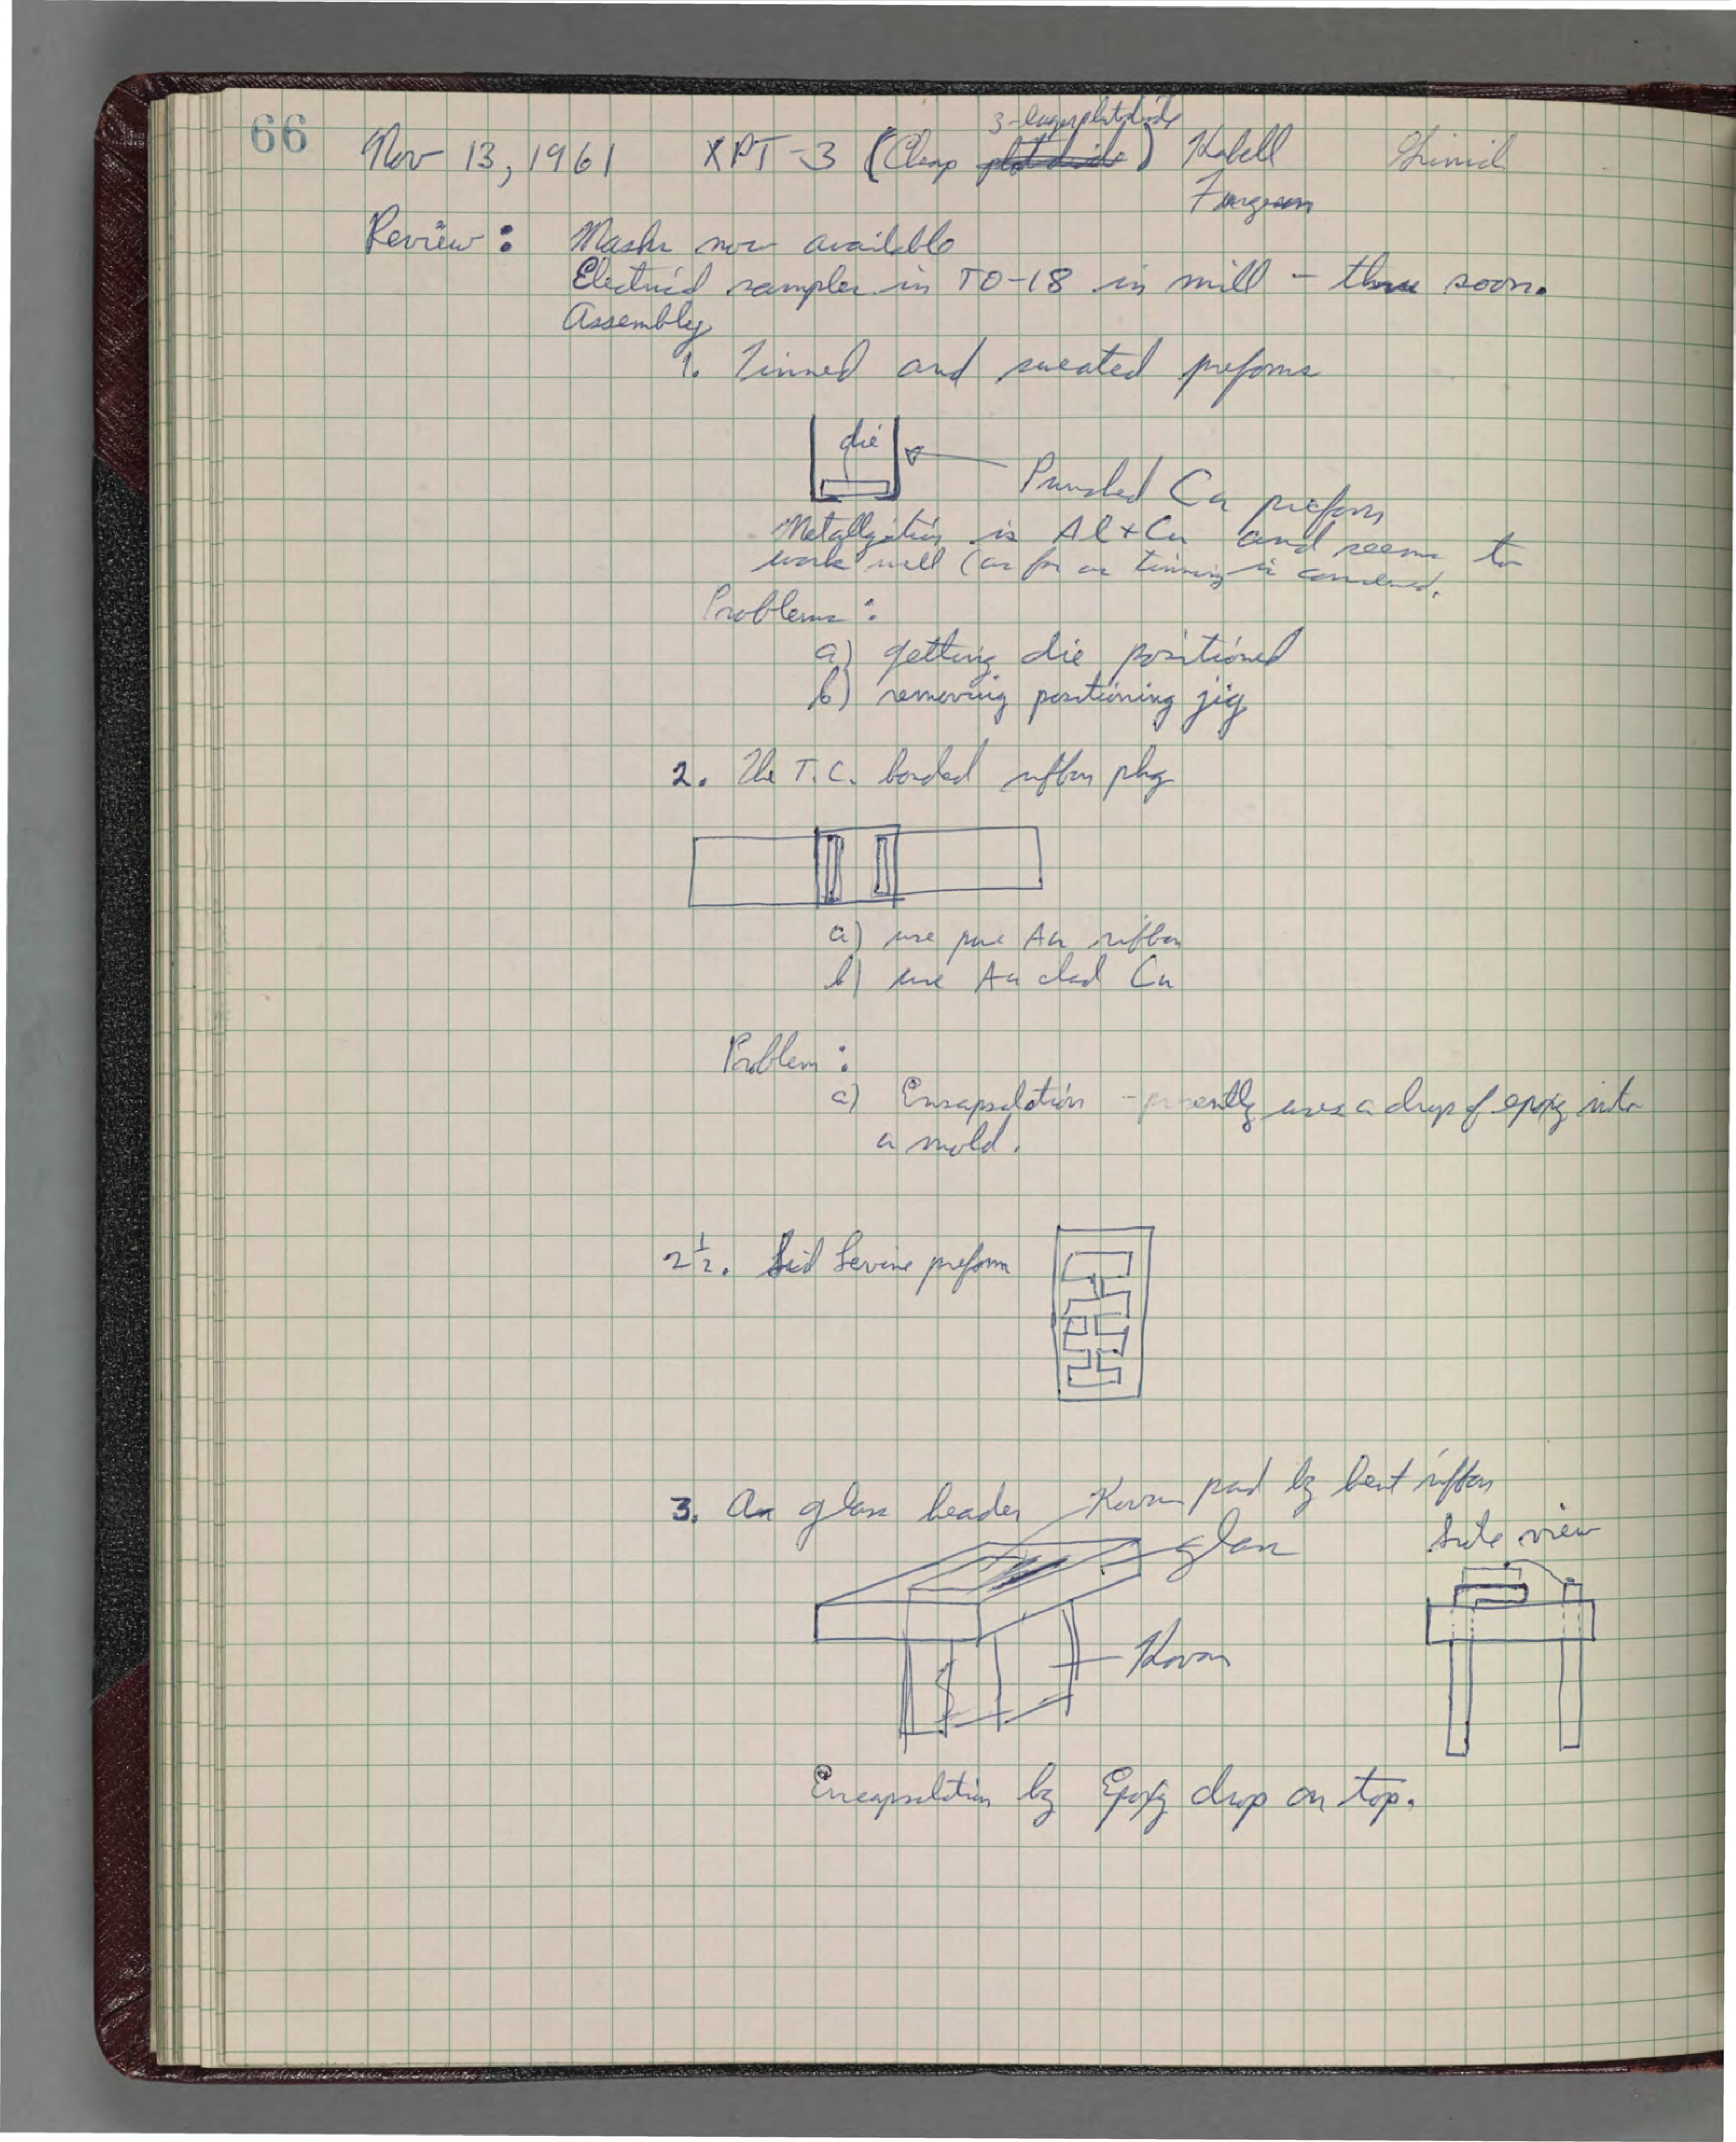 66
Nov 13, 1961 XPT-3 (Cheap 3-layer photodiode) Kabell
Ferguson
Review: Masks now available
Electrical samples in TO-18 in mill - thru soon.
Assembly
1. Tinned and sweated preforms
die
Punched Cu preform
Metallization is Al + Cu and seems to
work well (as far as tinning is concerned.
Problems:
a) getting die positioned
b) removing positioning jig
2. The T.C. bonded ribbon pkg
a) use pure Au ribbon
b) use Au clad Cu
Problem:
a) Encapsulation - presently uses a drop of epoxy into
a mold.
2 1/2. Sid Levine preform
3. An glass header
Kovar pad by bent ribbon
glass
side view
Kovar
Encapsulation by Epoxy drop on top.